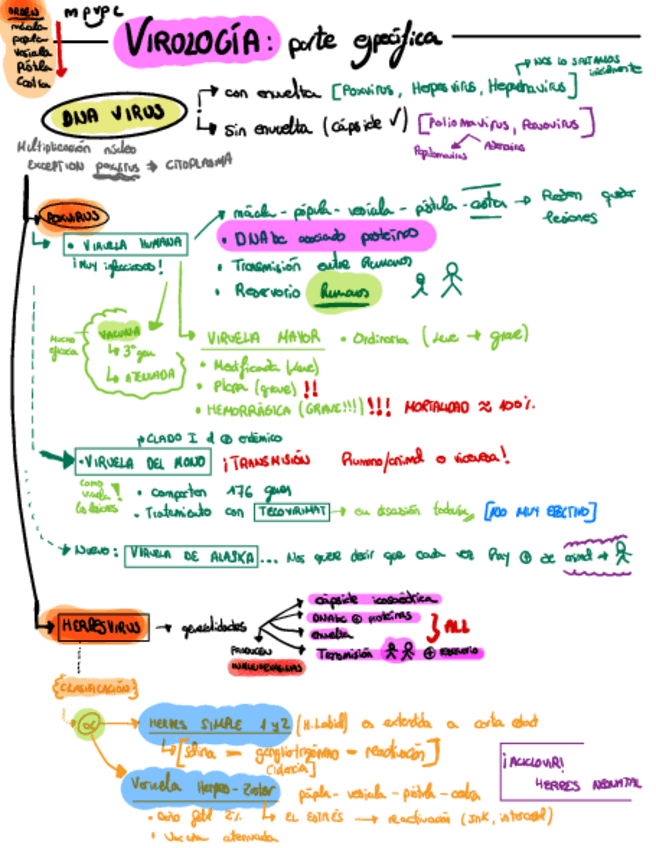 ORDEN
mácula
pápula
vesícula
pústula
Costra
MPVPC
VIROLOGÍA: parte específica
NOS LO SALTAMOS
inicialmente
DNA VIRUS
con envuelta [Poxvirus, Herpesvirus, Hepadnavirus]
sin envuelta (cápside ✓) [Poliomavirus, Parvovirus]
Papilomavirus Adenovirus
Multiplicación núcleo
EXCEPTION poxvirus → CITOPLASMA
POXVIRUS
mácula - pápula - vesícula - pústula - costra → Pueden quedar
lesiones
• VIRUELA HUMANA
¡MUY infecciosos!
• DNAbc asociado proteínas
• Transmisión entre Humanos
• Reservorio Humanos
Mucho
eficacia
VACUNA
↳ 3ª gen
↳ ATENUADA
VIRUELA MAYOR • Ordinaria (leve → grave)
• Modificada (leve)
• Plana (grave) !!
• HEMORRÁGICA (GRAVE!!!) !!! MORTALIDAD ≈ 100%.
CLADO I d ⊕ endémico
• VIRUELA DEL MONO ¡TRANSMISIÓN Humano/animal o viceversa!
como
viruela
las lesiones !
• comparten 176 genes
• Tratamiento con TECOVIRIMAT → en discusión todavía [NO MUY EFECTIVO]
Nuevo: VIRUELA DE ALASKA ... Nos quiere decir que cada vez hay ⊕ de animal →
HERPESVIRUS → generalidades
cápside icosaédrica
DNAbc ⊕ proteínas
envuelta
Transmisión ⊕ reservorio
} ALL
PRODUCEN
CLASIFICACIÓN
α
HERPES SIMPLE 1 y 2 (H. Labial) es extendida a corta edad
↳ [saliva — ganglio trigémino — reactivación]
Varicela Herpes-Zoster pápula - vesícula - pústula - costra
• Daño fetal 2% ↳ EL ESTRÉS → reactivación
• Vacuna atenuada
¡ACICLOVIR!
HERPES NEONATAL